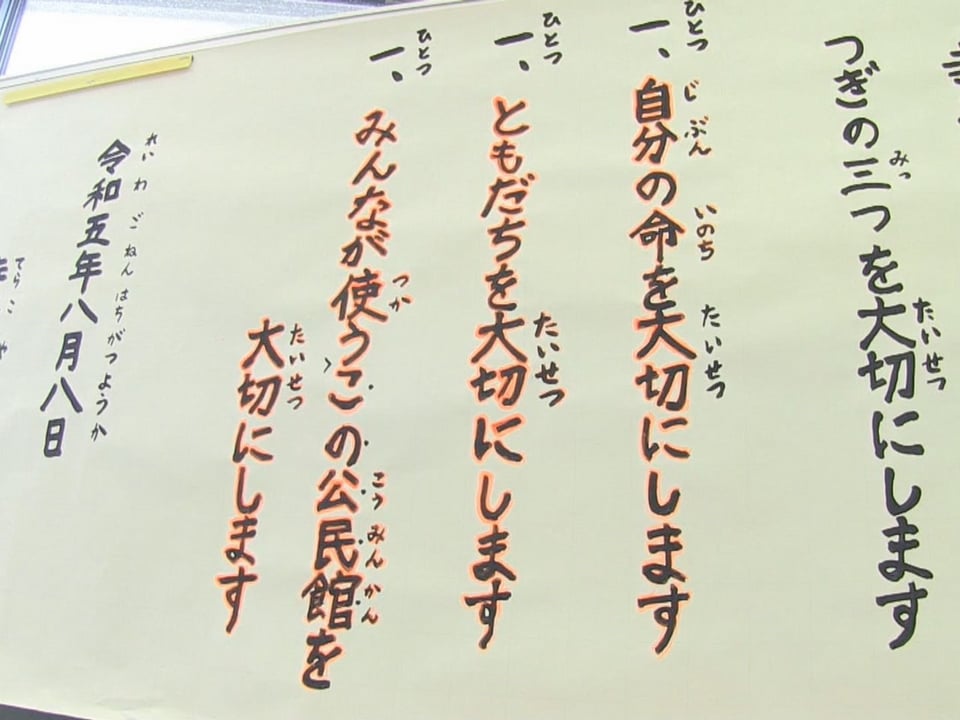 つぎの三つを大切にします
一、自分の命を大切にします
一、ともだちを大切にします
一、みんなが使うこの公民館を
大切にします
令和五年八月八日
みっ
たいせつ
ひとつ
じぶん
いのち
たいせつ
ひとつ
たいせつ
ひとつ
つか
こうみんかん
たいせつ
れいわごねんはちがつようか
てらこや